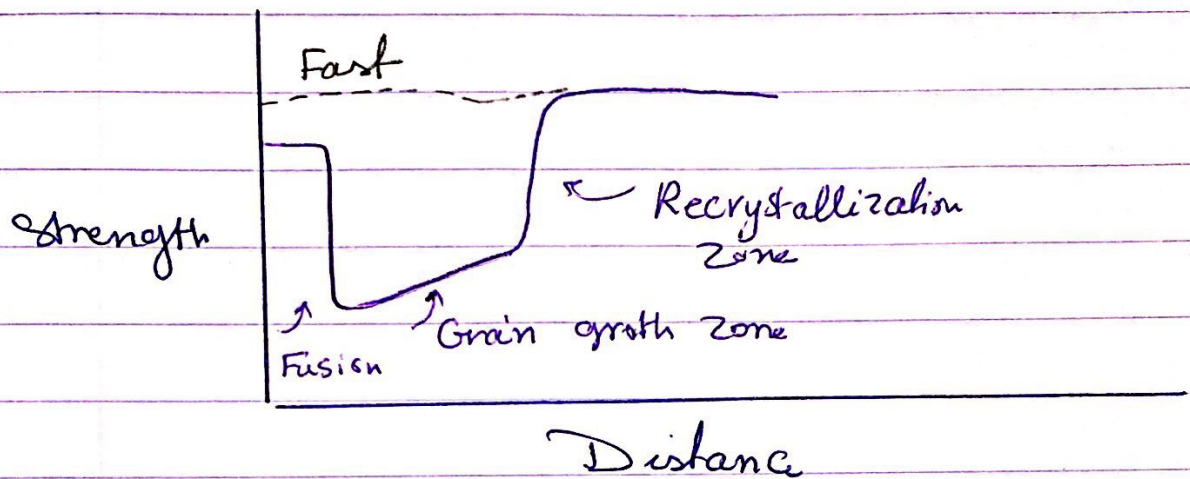 Fast
Strength
Recrystallization
Zone
Grain groth Zone
Fusion
Distance